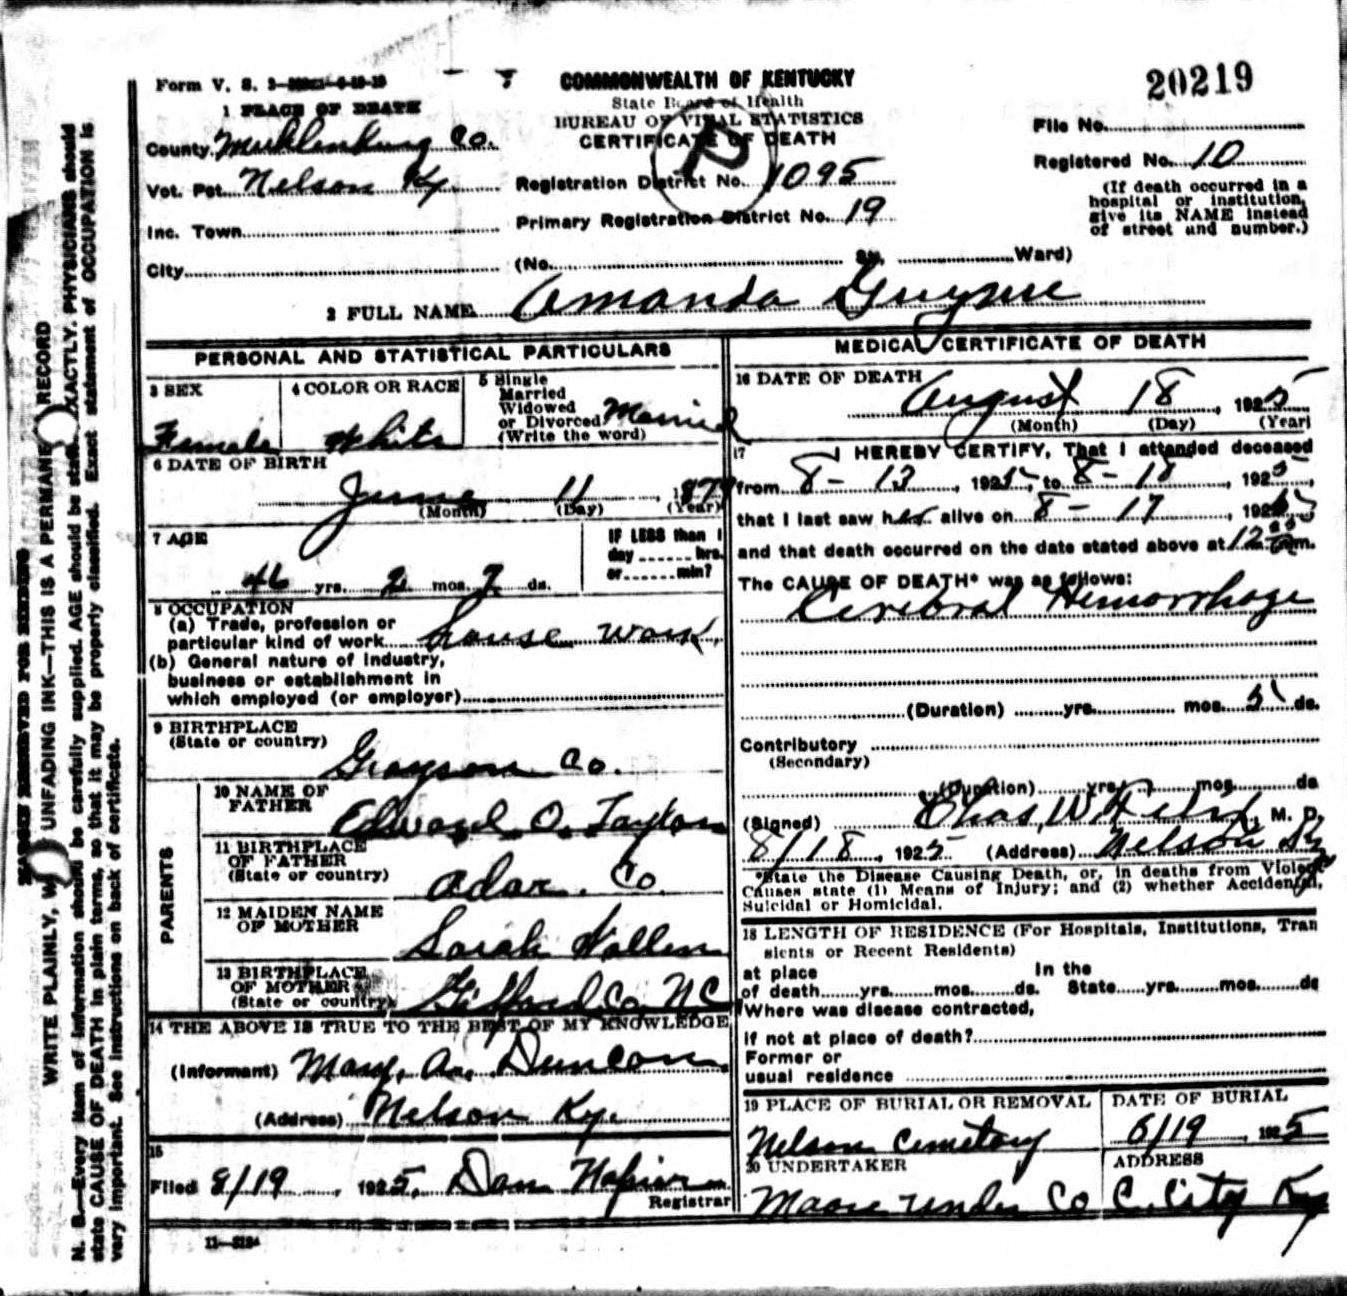 Form V. S.
COMMONWEALTH OF KENTUCKY
State Board of Health
BUREAU OF VITAL STATISTICS
CERTIFICATE OF DEATH
20219
1 PLACE OF DEATH
County Mecklenburg Co.
Vot. Pct. Nelson Ky.
Inc. Town
City
Registration District No. 1095
Primary Registration District No. 19
(No. St. Ward)
File No.
Registered No. 10
(If death occurred in a
hospital or institution,
give its NAME instead
of street and number.)
2 FULL NAME Amanda
PERSONAL AND STATISTICAL PARTICULARS
3 SEX
Female
4 COLOR OR RACE
White
5 Single
Married
Widowed
or Divorced Married
(Write the word)
6 DATE OF BIRTH
June 11, 1879
(Month) (Day) (Year)
7 AGE
46 yrs. 2 mos. 7 ds.
IF LESS than 1
day ...... hrs.
or ...... min?
8 OCCUPATION
(a) Trade, profession or
particular kind of work house work
(b) General nature of industry,
business or establishment in
which employed (or employer)
9 BIRTHPLACE
(State or country)
Grayson Co.
PARENTS
10 NAME OF
FATHER
Edward O. Taylor
11 BIRTHPLACE
OF FATHER
(State or country)
Adar. Co
12 MAIDEN NAME
OF MOTHER
Sarah Wallen
13 BIRTHPLACE
OF MOTHER
(State or country)
Gilford Co NC
14 THE ABOVE IS TRUE TO THE BEST OF MY KNOWLEDGE
(Informant) Mary. A. Duncan
(Address) Nelson Ky.
15
Filed 8/19, 1925, Dan Napier
Registrar
11—
MEDICAL CERTIFICATE OF DEATH
16 DATE OF DEATH
August 18, 1925
(Month) (Day) (Year)
17 I HEREBY CERTIFY, That I attended deceased
from 8-13, 1925, to 8-18, 1925,
that I last saw her alive on 8-17, 1925
and that death occurred on the date stated above at 12 m.
The CAUSE OF DEATH* was as follows:
Cerebral Hemorrhage
(Duration) yrs. mos. 5 ds.
Contributory
(Secondary)
(Duration) yrs. mos. ds
(Signed) Chas. W, M. D.
8/18, 1925 (Address) Nelson Ky
*State the Disease Causing Death, or, in deaths from Violent
Causes state (1) Means of Injury; and (2) whether Accidental,
Suicidal or Homicidal.
18 LENGTH OF RESIDENCE (For Hospitals, Institutions, Tran
sients or Recent Residents)
at place In the
of death yrs. mos. ds. State yrs. mos. ds
Where was disease contracted,
if not at place of death?
Former or
usual residence
19 PLACE OF BURIAL OR REMOVAL
Nelson Cemetory
DATE OF BURIAL
8/19, 1925
20 UNDERTAKER
Moore under Co
ADDRESS
C. City Ky
MARGIN RESERVED FOR BINDING
WRITE PLAINLY, WITH UNFADING INK—THIS IS A PERMANENT RECORD
N. B.—Every item of information should be carefully supplied. AGE should be stated EXACTLY. PHYSICIANS should
state CAUSE OF DEATH in plain terms, so that it may be properly classified. Exact statement of OCCUPATION is
very important. See instructions on back of certificate.